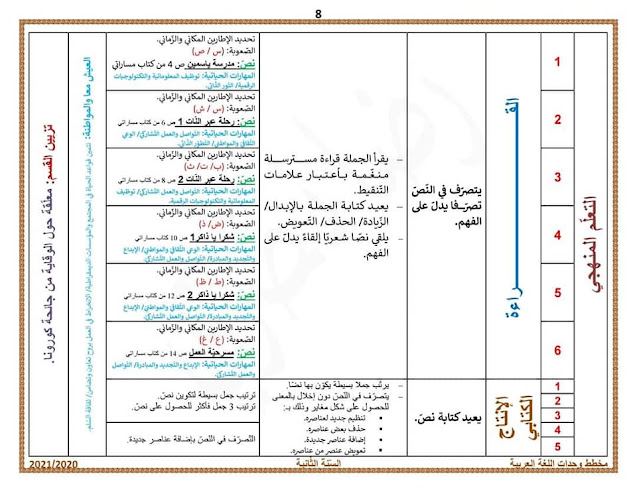 8
التعلّم المنهجي
القــراءة
يتصرّف في النّصّ
تصرّفا يدلّ على
الفهم.
– يقرأ الجملة قراءة مسترسلة
منغّمة باعتبار علامات
التّنقيط.
– يعيد كتابة الجملة بالإبدال/
الزّيادة/ الحذف/ التّعويض.
– يلقي نصّا شعريّا إلقاءً يدلّ على
الفهم.
1
تحديد الإطارين المكاني والزّماني.
الصّعوبة: (س / ص)
نصّ: مدرسة ياسمين ص 4 من كتاب مساراتي
المهارات الحياتية: توظيف المعلوماتية والتكنولوجيات
الرقمية/ النّور الذّاتي.
2
تحديد الإطارين المكاني والزّماني.
الصّعوبة: (س / ش)
نصّ: رحلة عبر النّات 1 ص 6 من كتاب مساراتي
المهارات الحياتية: التّواصل والعمل التّشاركي/ الوعي
الثّقافي والمواطني/ التّطوّر الذّاتي.
3
تحديد الإطارين المكاني والزّماني.
الصّعوبة: (ب / ت/ ث)
نصّ: رحلة عبر النّات 2 ص 8 من كتاب مساراتي
المهارات الحياتية: التّواصل والعمل التّشاركي/ توظيف
المعلوماتية والتكنولوجيات الرقمية.
4
تحديد الإطارين المكاني والزّماني.
الصّعوبة: (ض / ذ)
نصّ: شكرا يا ذاكر 1 ص 10 من كتاب مساراتي
المهارات الحياتية: الوعي الثّقافي والمواطني/ الإبداع
والتّجديد والمبادرة/ التّواصل والعمل التّشاركي.
5
تحديد الإطارين المكاني والزّماني.
الصّعوبة: (ط / ظ)
نصّ: شكرا يا ذاكر 2 ص 12 من كتاب مساراتي
المهارات الحياتية: الوعي الثّقافي والمواطني/ الإبداع
والتّجديد والمبادرة/ التّواصل والعمل التّشاركي.
6
تحديد الإطارين المكاني والزّماني.
الصّعوبة: (ع / غ)
نصّ: مسرحيّة العمل ص 14 من كتاب مساراتي
المهارات الحياتية: الإبداع والتّجديد والمبادرة/ التّواصل
والعمل التّشاركي.
الإنتاج
الكتابي
1
2
3
4
5
يعيد كتابة نصّ.
– يرتّب جملا بسيطة يكوّن بها نصّا.
– يتصرّف في النّصّ دون إخلال بالمعنى
للحصول على شكل مغاير وذلك بـ:
• تنظيم جديد لعناصره.
• حذف بعض عناصره.
• إضافة عناصر جديدة.
• تعويض عنصر من عناصره.
ترتيب جمل بسيطة لتكوين نصّ.
ترتيب 3 جمل فأكثر للحصول على نصّ.
التّصرّف في النّصّ بإضافة عناصر جديدة.
العيش معا والمواطنة:
تزيين القسم: معلّقة حول الوقاية من جائحة كورونا.
مخطط وحدات اللغة العربية
السنة الثّانية
2021/2020